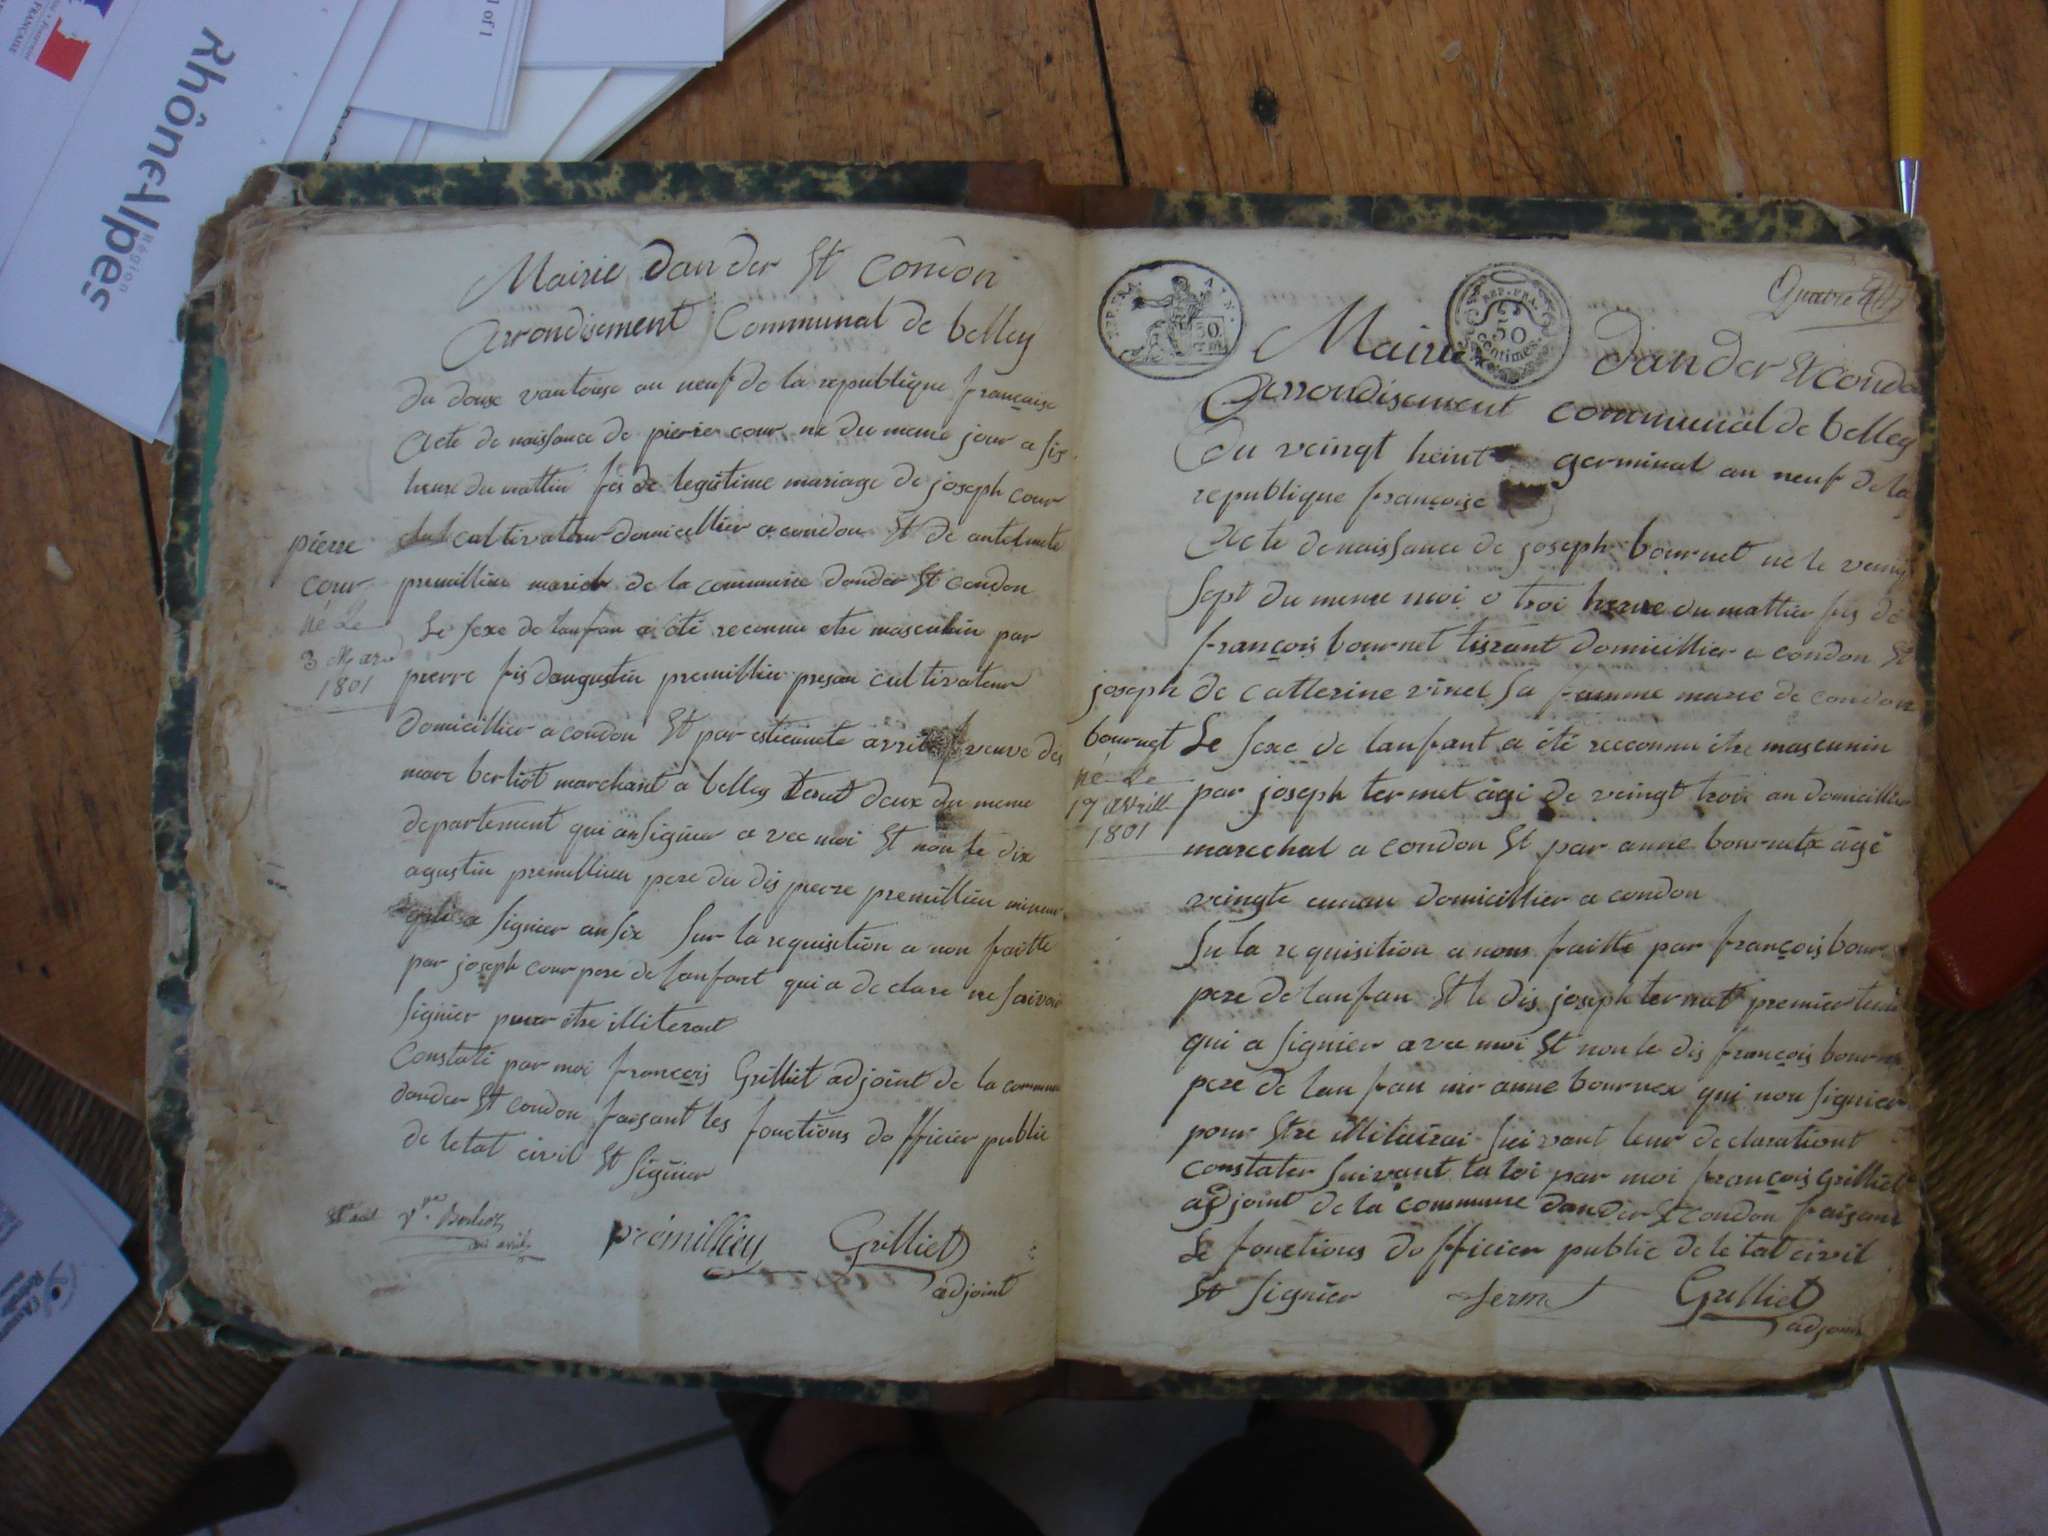 Rhône-Alpes
Région
1 of 1
FRANÇAISE
Mairie dander St Condon
Arrondisement Communal de belley
du douse vantouse an neuf de la republique françaisse
Acte de naissance de pierre cour ne du meme jour a six
heure du mattin fis de legitime mariage de joseph cour
cultivateur domicellier a condon St de antelmete
premillieu marieh de la commune dander St condon
Le sexe de lanfan a été reconnu etre masculin par
pierre fis daugustin premillieu presan cultivateur
domicillier a condon St par estiennete avril veuve de
marc berliot marchant a belley deux du meme
departement qui ansigner avec moi St non le dix
agustin premillieu pere du dis pierre premillieu mineur
signier ansix Sur la requisition a non faitte
par joseph cour pere de lanfant qui a declare ne saivoir
signier pour être illiteraet
Constaté par moi françois Grilliet adjoint de la commune
dander St condon faisant les fonctions dofficier public
de letat civil St Signier
pierre
cour
né Le
3 Mars
1801
Ve. Berlioz
née avril
prémillieu Grilliet
adjoint
REP. FRA.
50
centimes
Quatre
Mairie dander St Condo
Arrondisement communal de belley
du veingt heint germinal an neuf de la
republique françoise
Acte denaissance de joseph bournet ne le veing
sept du meme moi a troi heure du mattin fis de
françois bournet tissrant domicillier a condon St
de catterine vinet sa famme marie de condon
Le sexe de lanfant a été reconnu être mascunin
par joseph termet âgé de veingt trois an domicillier
marechal a condon St par anne bournetx âgé
veingte un an domicillier a condon
Su la requisition a nous faitte par françois bour
pere de lanfan St le dis joseph termet premier temoi
qui a signier avec moi St non le dis françois bournet
pere de lanfan nir anne bournex qui non signier
pour Stre illitairai suivant leur declarationt
constater suivant la loi par moi françois Grilliet
adjoint de la commune dander St condon faisant
Le fonctions dofficier public de letat civil
St Signier Termet Grilliet
adjoint
joseph
bournet
né Le
17 avrill
1801